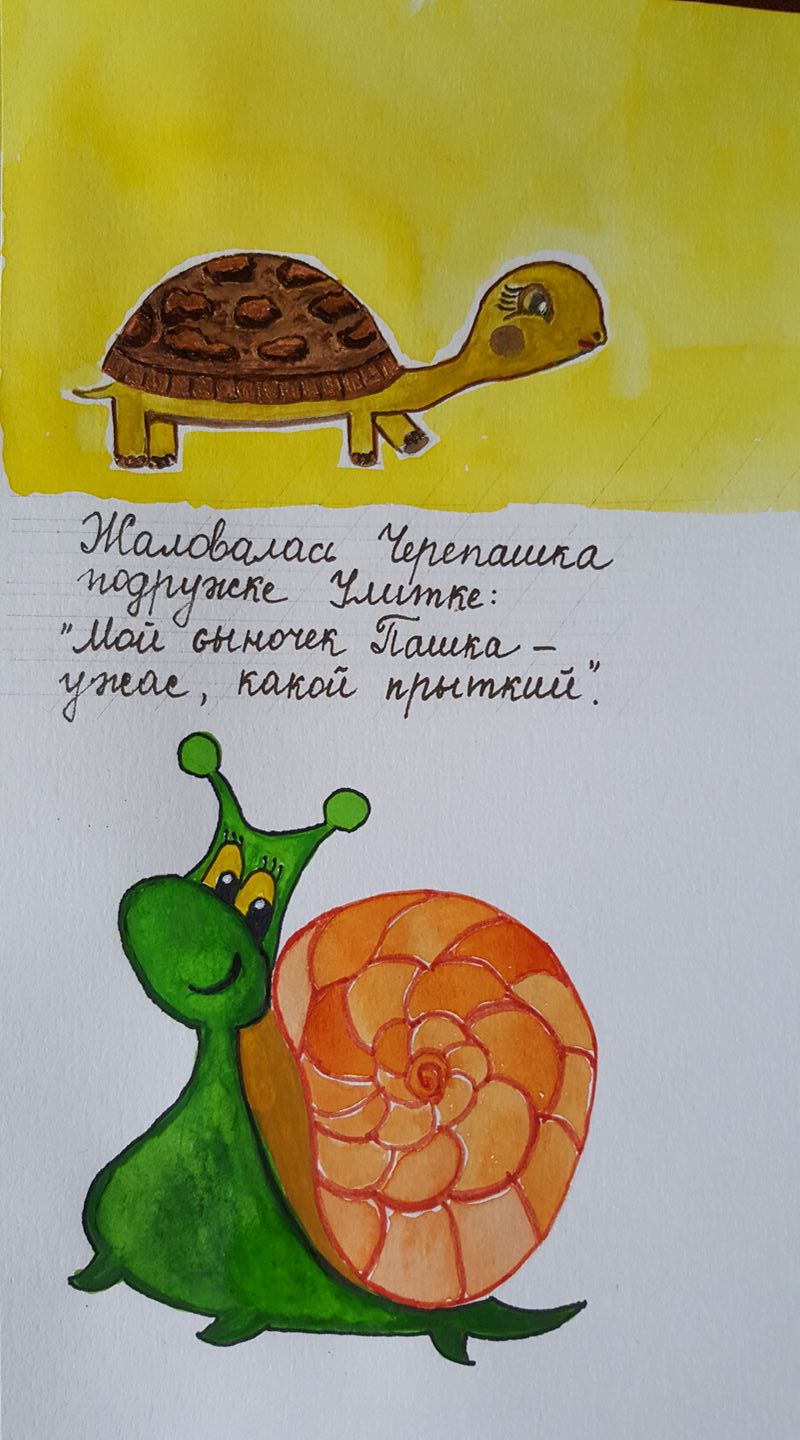 Жаловалась Черепашка
подружке Улитке:
"Мой сыночек Пашка –
ужас, какой прыткий".